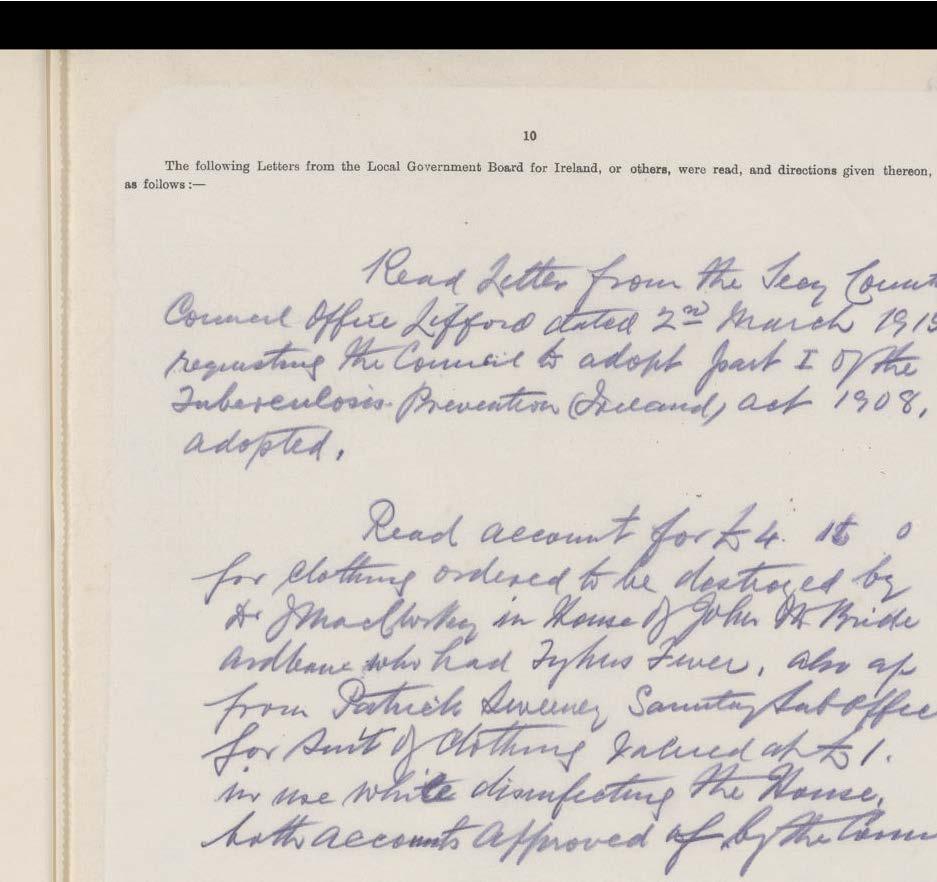 10
The following Letters from the Local Government Board for Ireland, or others, were read, and directions given thereon,
as follows :—
Read Letter from the Secy Count
Council Office Lifford dated 2nd March 191
requesting the Council to adopt part I of the
Tuberculosis Prevention (Ireland) act 1908,
adopted.
Read account for £4. 0
for clothing ordered to be destroyed by
Dr J in House of John McBride
who had Typhus Fever, also ap
from Patrick Sweeney Sanitay Sub Office
for Suit of Clothing valued at £1.
in use while disinfecting the House,
both accounts approved of by the Coun